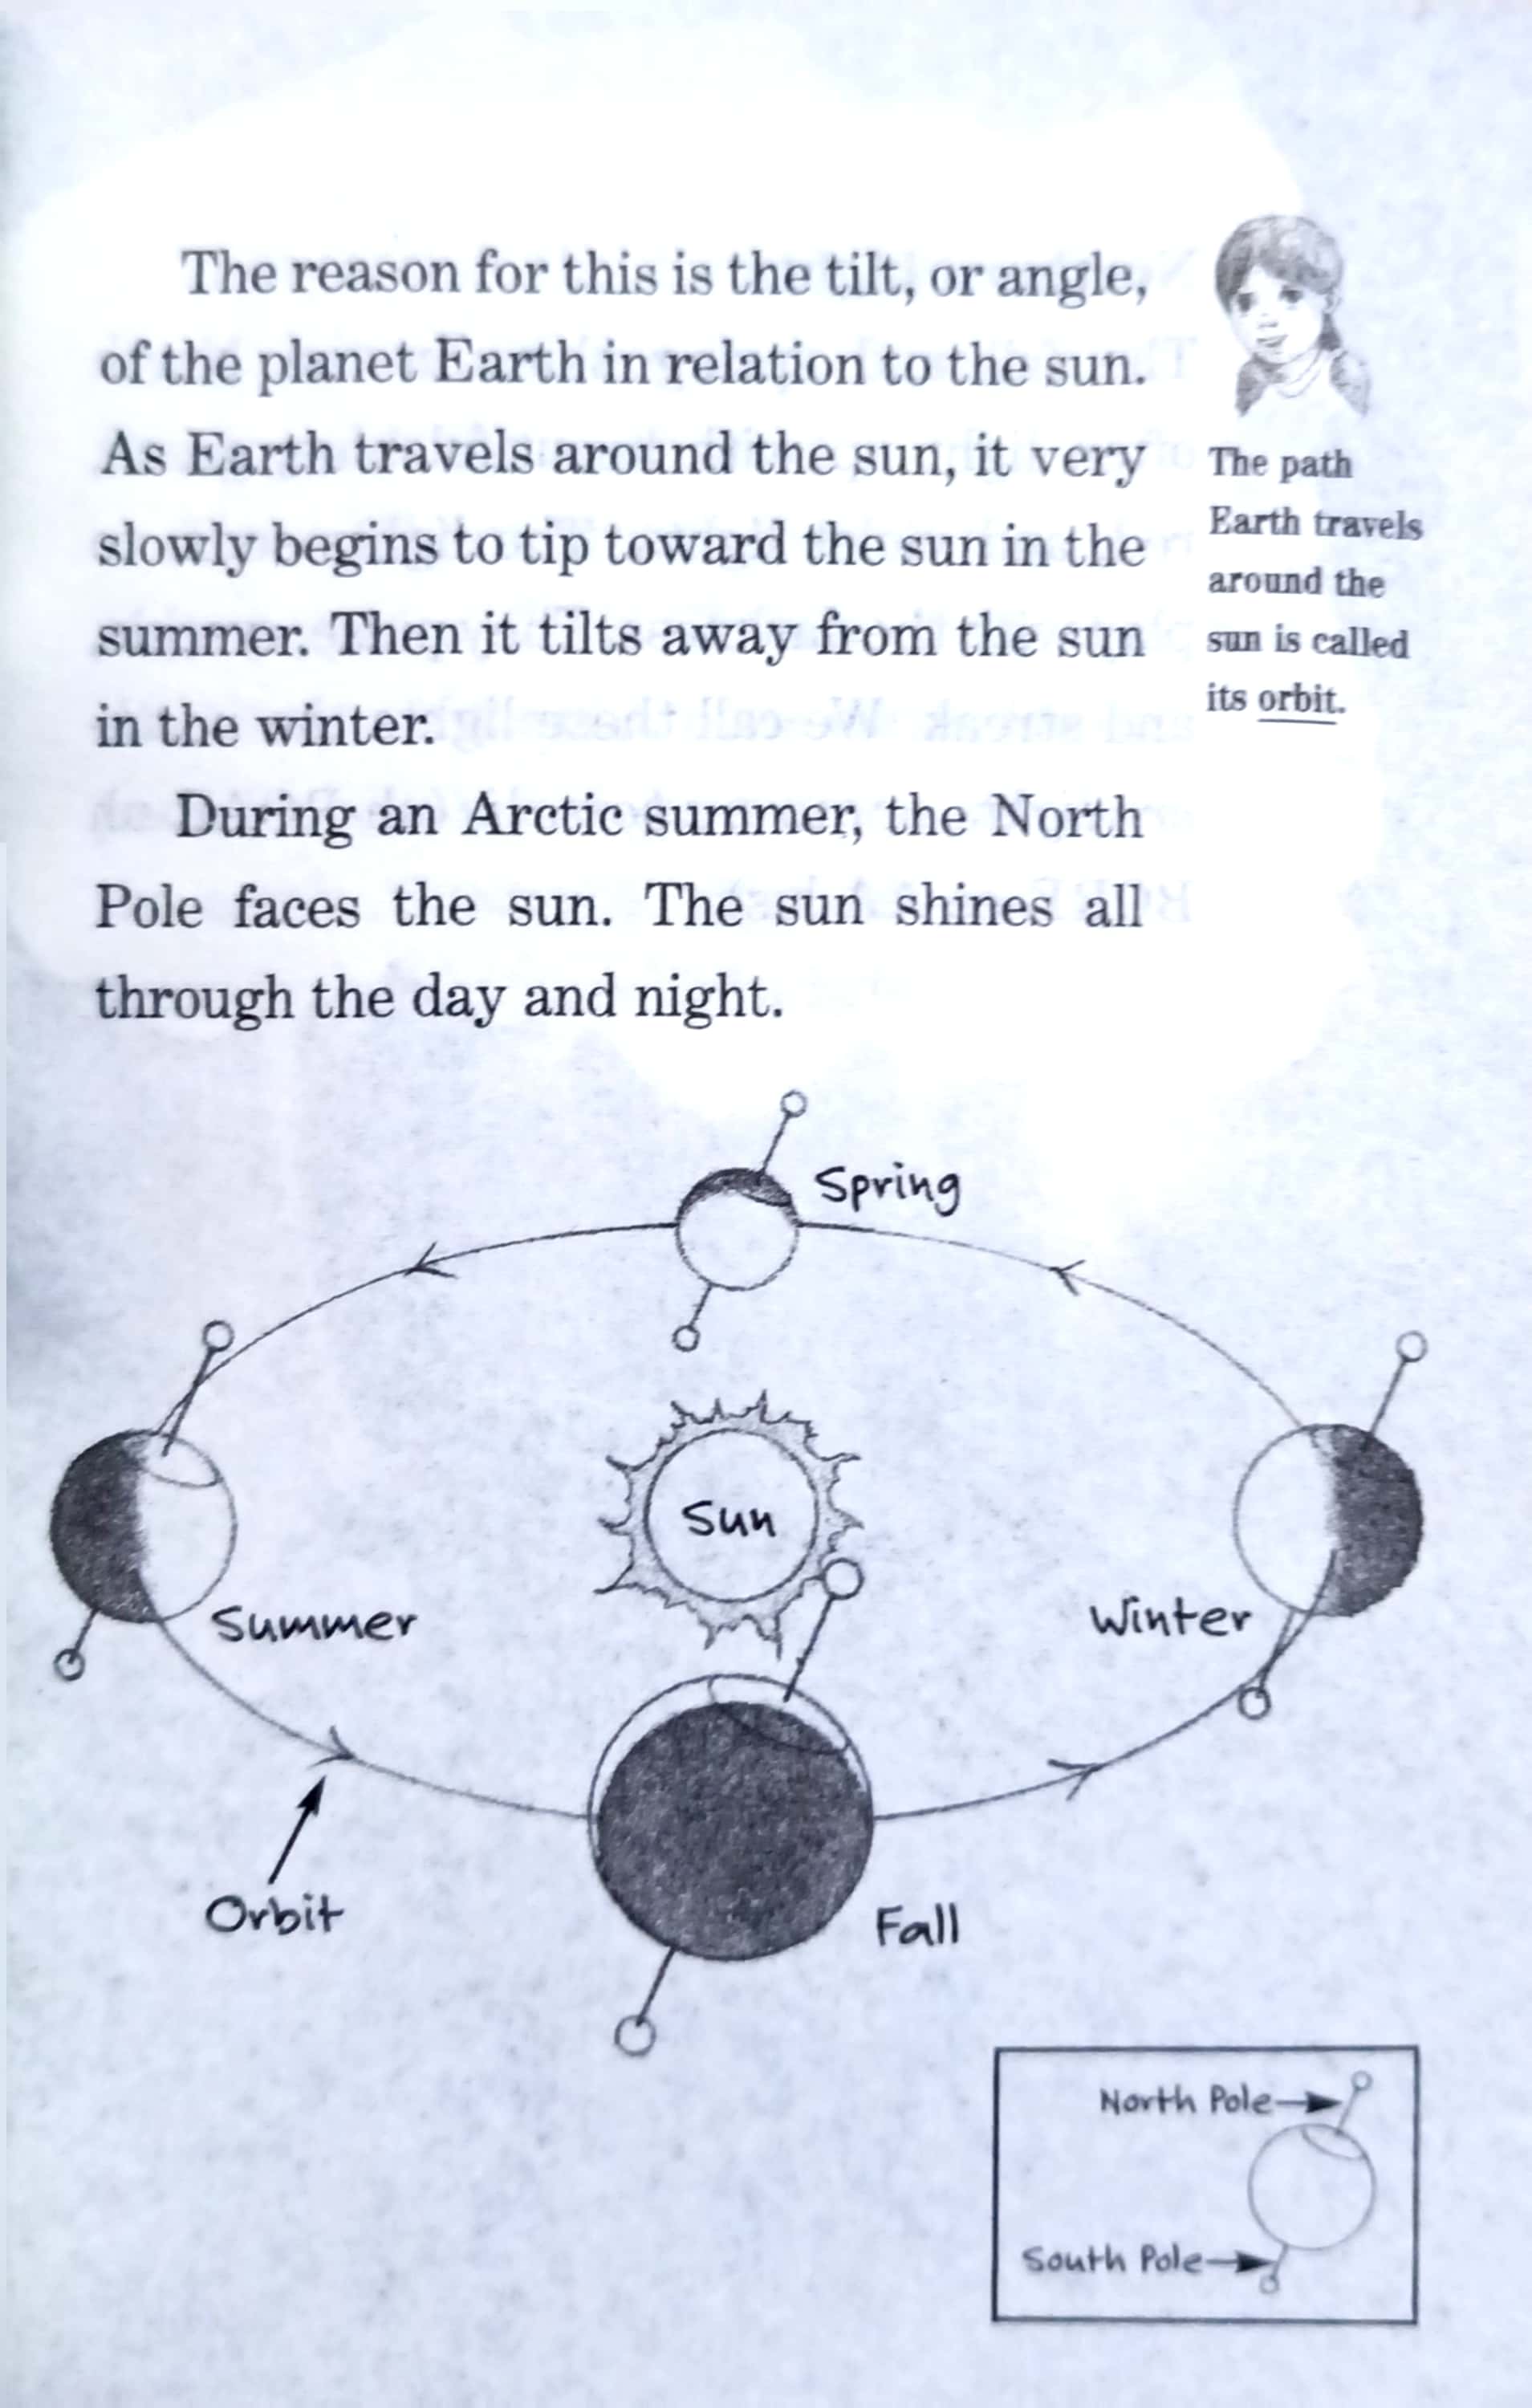 The reason for this is the tilt, or angle,
of the planet Earth in relation to the sun.
As Earth travels around the sun, it very
slowly begins to tip toward the sun in the
summer. Then it tilts away from the sun
in the winter.
During an Arctic summer, the North
Pole faces the sun. The sun shines all
through the day and night.
The path
Earth travels
around the
sun is called
its orbit.
Spring
Sun
Summer
Winter
Orbit
Fall
North Pole
South Pole